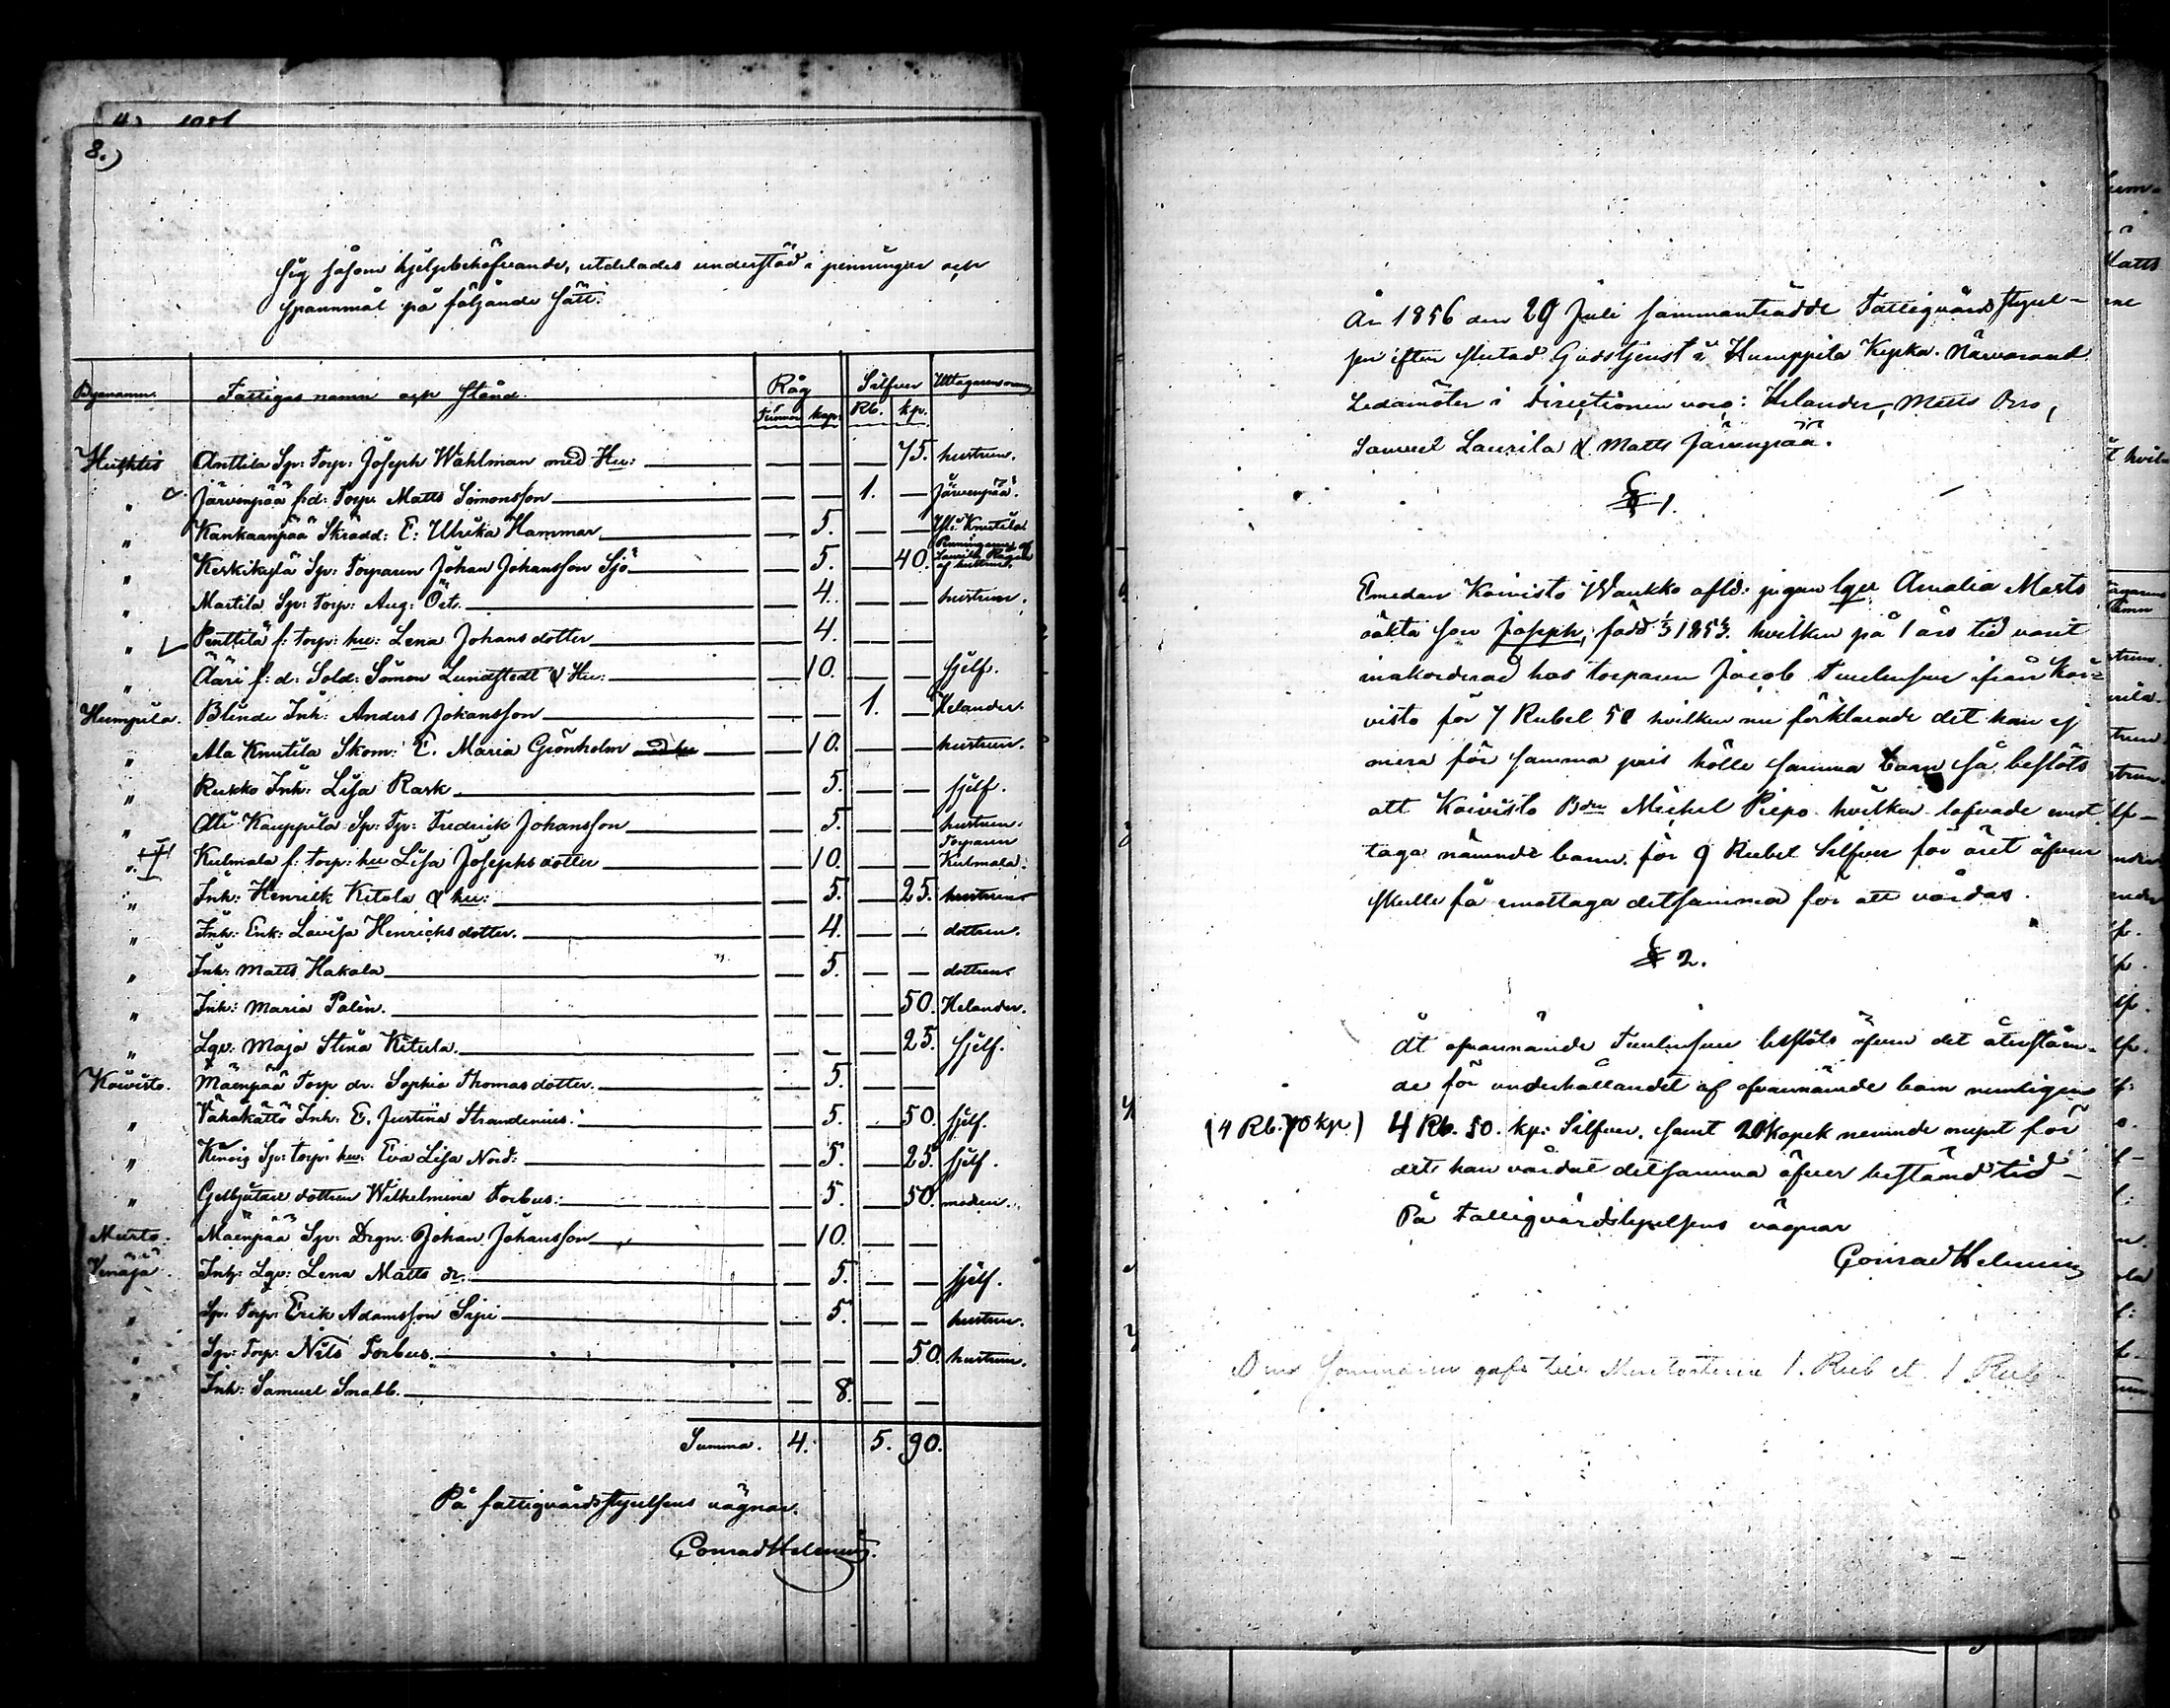 8.)
sig såsom hjelpbehöfvande, utdelades understöd i penningar och
spannmål på följande sätt:
Bynamn. Fattiges namn och stånd. Råg Silfver Uttagarens namn
Tunnor kapp: Rb. kp.
Huhtis Anttila Sp: Torp: Joseph Wahlman med Hu: — — — 75. hustrun.
" Järvenpää f:d: Torp: Matts Simonsson — — 1. — Järvenpää.
" Kankaanpää Skrädd: E: Ulrika Hammar — 5. — — Knutila
" Keskikylä Sp: Torparen Johan Johansson Sjö — 5. — 40. Penningarne af Laurila Rågen af hustrun.
" Martila Sp: Torp: Aug: Öst. — 4. — — hustrun.
" Penttilä f: torp: hu: Lena Johansdotter — 4. — —
" Ääri f: d: Sold: Simon Lundstedt & Hu: — 10. — — sjelf.
Humpila. Blinde Inh: Anders Johansson — — 1. — Helander.
" Ala Knutila Skom: E. Maria Grönholm — 10. — — hustrun.
" Rukko Inh: Lisa Rask — 5. — — sjelf.
" Alli Kauppila Sp: Tp: Fredrick Johansson — 5. — — hustrun.
" Kulmala f: torp: hu Lisa Josephsdotter — 10. — — Torparen Kulmala.
" Inh: Henrik Kitola & hu: — 5. — 25. hustrun
" Inh: Enk: Lovisa Henrichsdotter. — 4. — — dottren.
" Inh: Matts Hakala — 5. — — dottren
" Inh: Maria Palin. — — — 50. Helander.
" Lqv: Maja Stina Kitula. — — — 25. sjelf.
Koivisto. Mäenpää Torp dr. Sophia Thomasdotter. — 5. — —
" Vähäkättö Inh: E. Justina Strandenius. — 5. — 50. sjelf.
" Sp: torp: hu: Eva Lisa Nord: — 5. — 25. sjelf.
" dottren Wilhelmina Forbus: — 5. — 50. modren.
Murto. Mäenpää Sp: Drgn. Johan Johansson — 10. — —
Venäjä. Inh: Lqv: Lena Matts dr. — 5. — — sjelf.
" Sp: Torp: Erik Adamsson Sipi — 5. — — hustrun.
" Sp: Torp: Nils Forbus. — — — 50. hustrun.
" Inh: Samuel Snabb. — 8. — —
Summa. 4. 5. 90.
På fattigvårdsstyrelsens vägnar.
Conrad Helenius.
År 1856 den 29 Juli sammanträdde Fattigvårdsstyrel-
sen efter slutad Gudstjenst i Humppila Kyrka. Närvarand
Ledamöter i Directionen voro: Helander, Matts Orro,
Samuel Laurila & Matts Järvenpää.
§ 1.
Emedan Koivisto Waukko afld: pigan lqv Amalia Marts
oäkta son Joseph, född 1853. hvilken på 1 års tid varit
inakorderad hos torparen Jacob ifrån Koi-
visto för 7 Rubel 50 hvilken nu förklarade det han ej
mera för samma pris hölle samma barn så beslöts
att Koivisto Bdn Michel Piepo hvilken lofvade emot
taga nämnde barn för 9 Rubel Silfver för året äfven
skulle få emottaga detsamma för att vårdas.
§ 2.
Åt ofvannämde beslöts äfven det återståen-
de för underhållandet af ofvannämde barn nemligen
(4 Rb. 70 kp.) 4 Rb. 50. kp: Silfver. samt 20 kopek för
det han vårdat detsamma öfver bestämd tid —
På Fattigvårdstyrelsens vägnar
Conrad Helenius
1. Rub et. 1. Rub